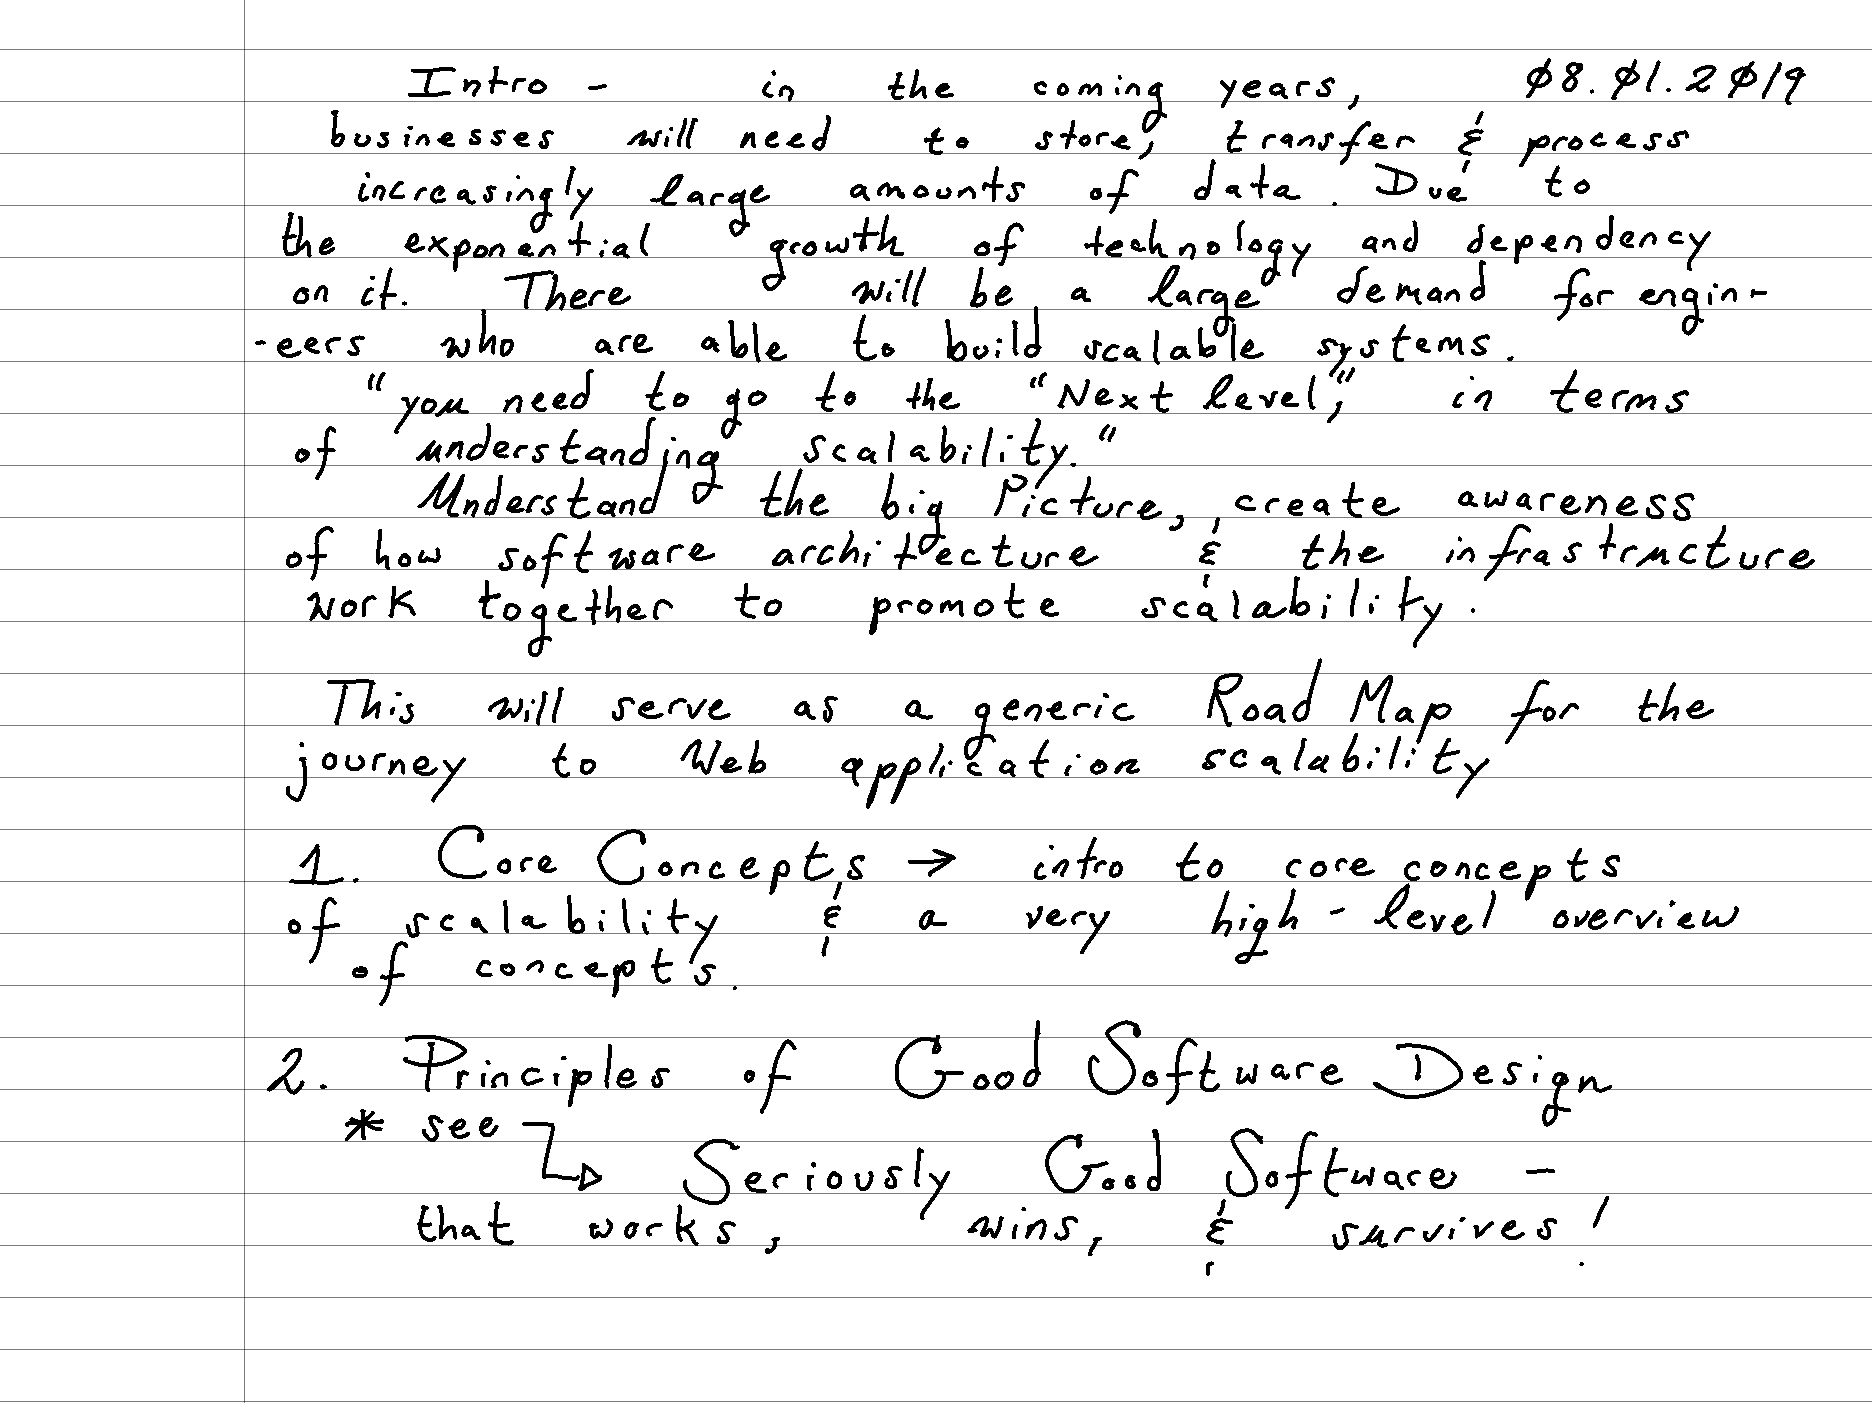 Intro - in the coming years, 08.01.2019
businesses will need to store, transfer & process
increasingly large amounts of data. Due to
the exponential growth of technology and dependency
on it. There will be a large demand for engin-
-eers who are able to build scalable systems.
"you need to go to the "Next level," in terms
of understanding scalability."
Understand the big Picture, create awareness
of how software architecture & the infrastructure
work together to promote scalability.
This will serve as a generic Road Map for the
journey to Web application scalability
1. Core Concepts → intro to core concepts
of scalability & a very high-level overview
of concepts.
2. Principles of Good Software Design
* see
Seriously Good Software -
that works, wins, & survives!